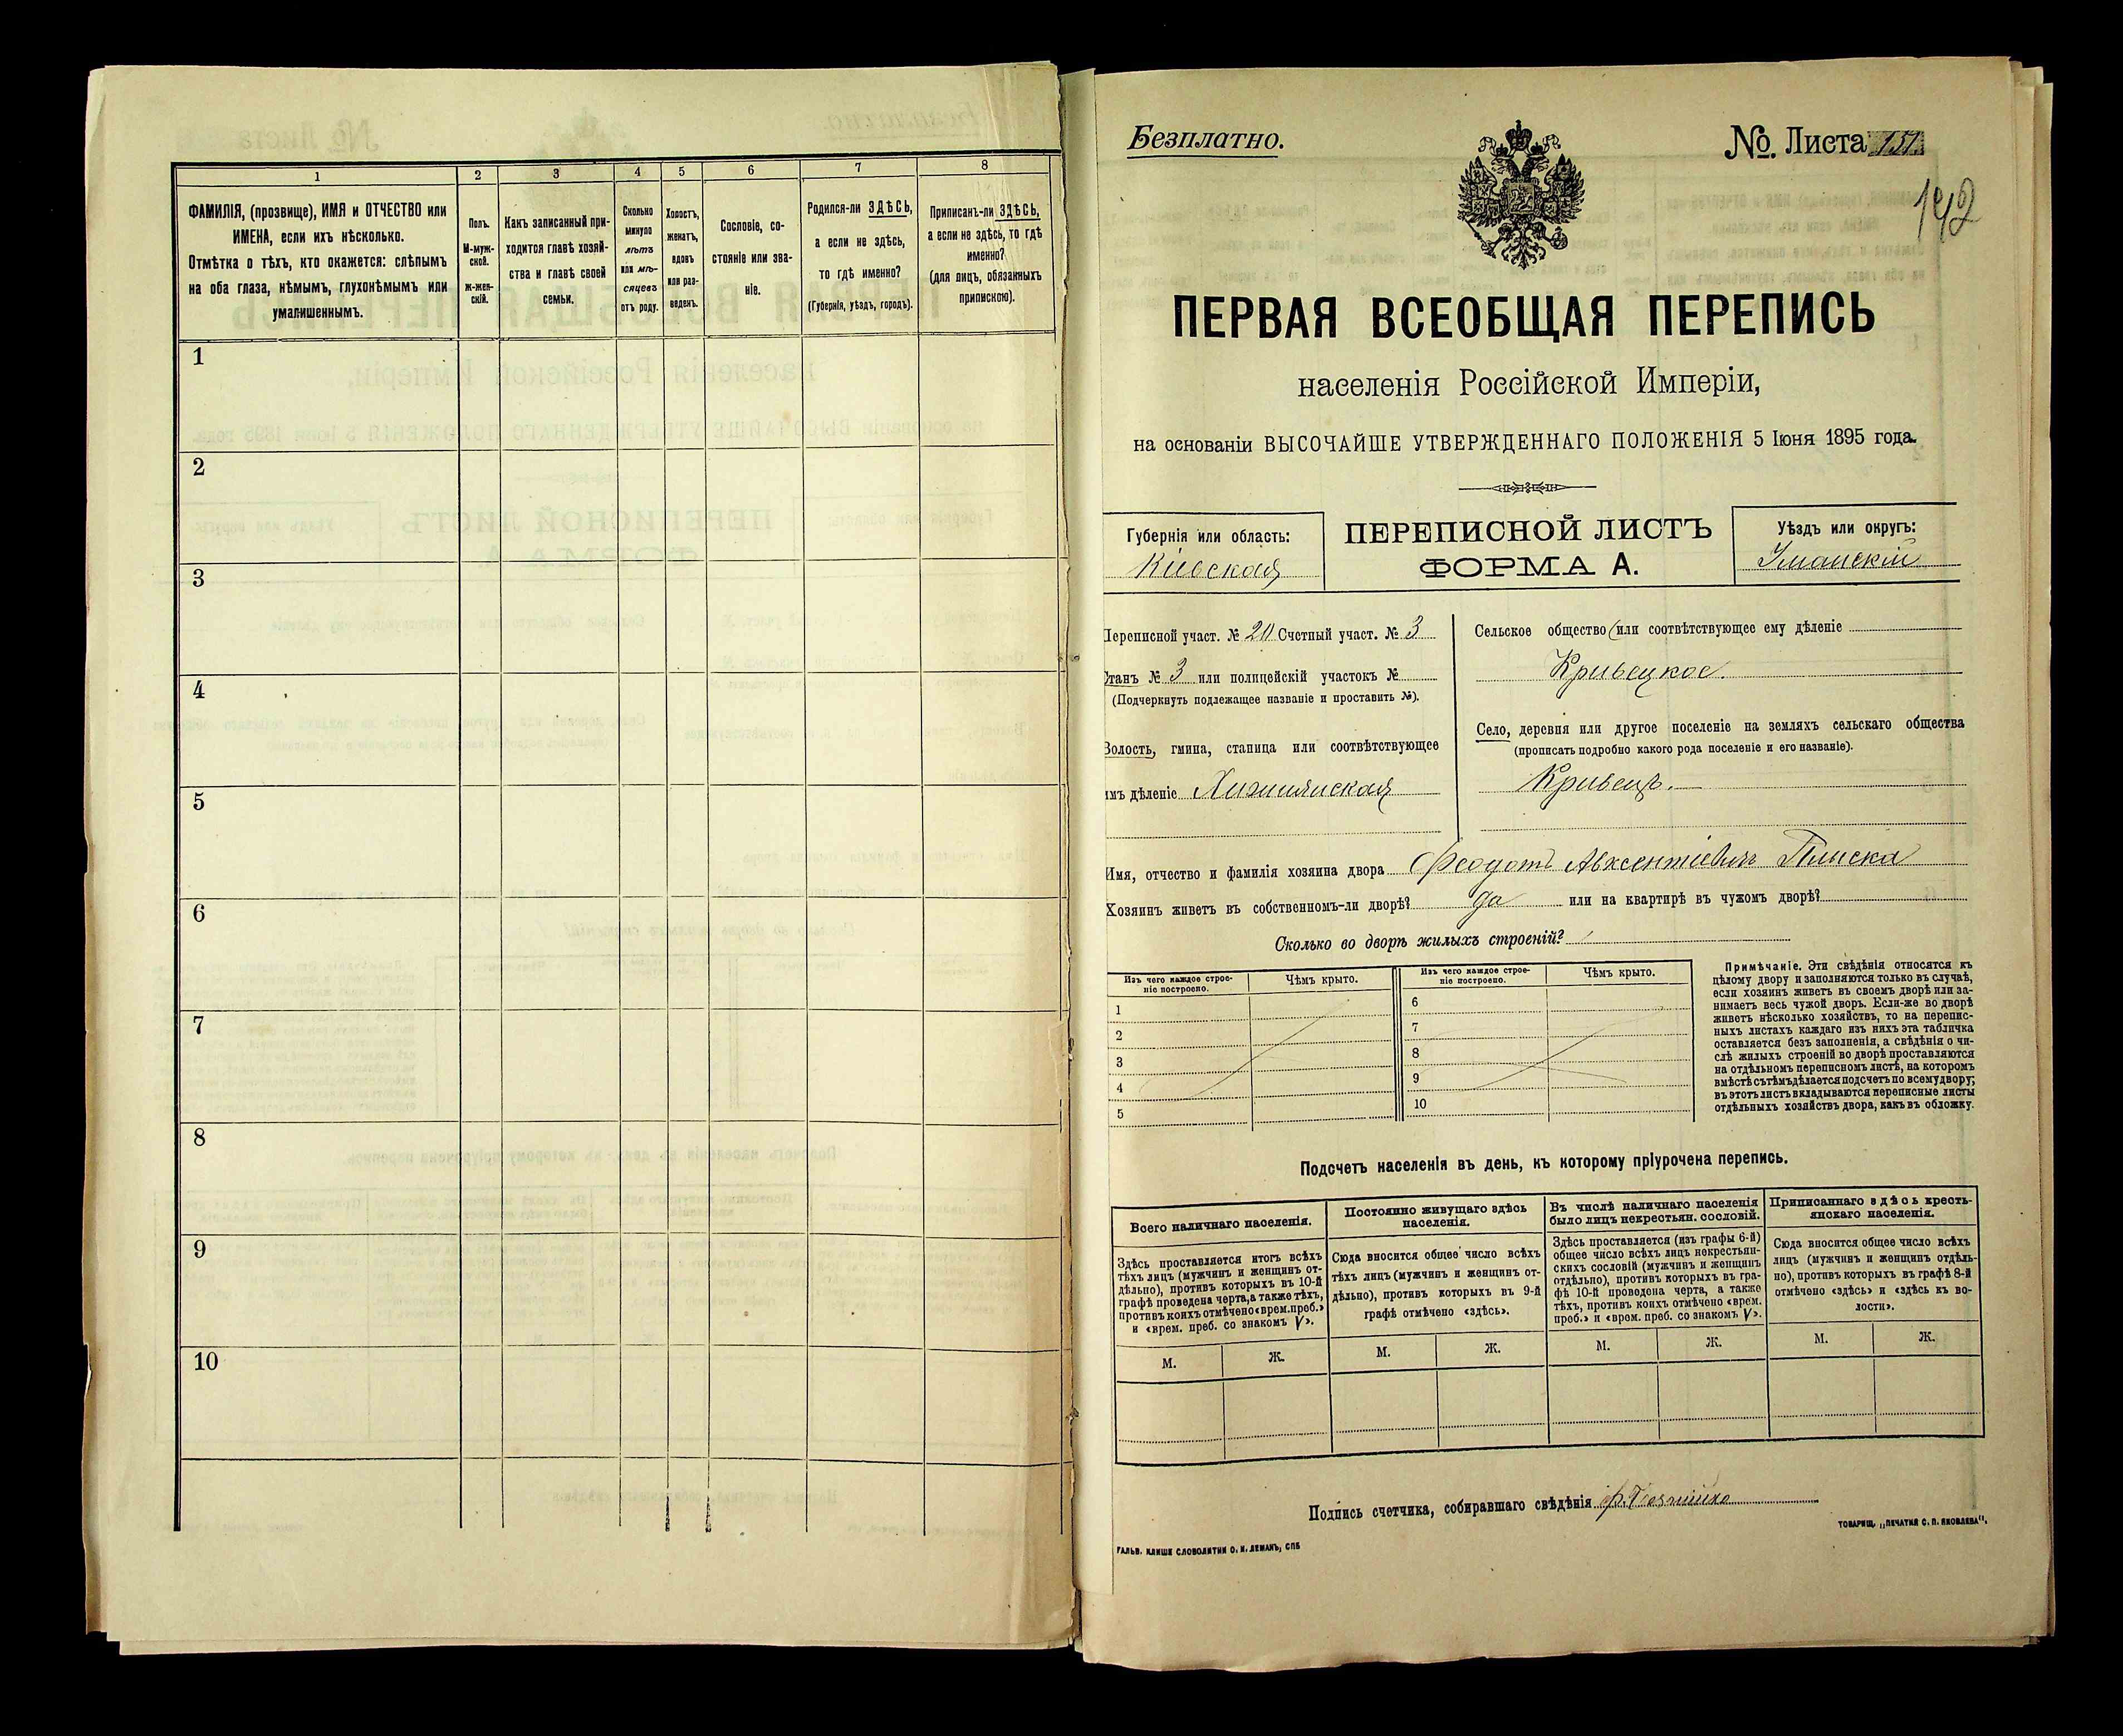 1
2
3
4
5
6
7
8
ФАМИЛІЯ, (прозвище), ИМЯ и ОТЧЕСТВО или
ИМЕНА, если ихъ нѣсколько.
Отмѣтка о тѣхъ, кто окажется: слѣпымъ
на оба глаза, нѣмымъ, глухонѣмымъ или
умалишеннымъ.
Полъ.
М-муж-
ской.
Ж-жен-
скій.
Какъ записанный при-
ходится главѣ хозяй-
ства и главѣ своей
семьи.
Сколько
минуло
лѣтъ
или мѣ-
сяцевъ
отъ роду.
Холостъ,
женатъ,
вдовъ
или раз-
веденъ.
Сословіе, со-
стояніе или зва-
ніе.
Родился-ли ЗДѢСЬ,
а если не здѣсь,
то гдѣ именно?
(Губернія, уѣздъ, городъ).
Приписанъ-ли ЗДѢСЬ,
а если не здѣсь, то гдѣ
именно?
(для лицъ, обязанныхъ
припискою).
1
2
3
4
5
6
7
8
9
10
Безплатно.
№. Листа 151.
142
ПЕРВАЯ ВСЕОБЩАЯ ПЕРЕПИСЬ
населенія Россійской Имперіи,
на основаніи ВЫСОЧАЙШЕ УТВЕРЖДЕННАГО ПОЛОЖЕНІЯ 5 Іюня 1895 года.
Губернія или область:
Кіевская
ПЕРЕПИСНОЙ ЛИСТЪ
ФОРМА А.
Уѣздъ или округъ:
Уманскій
Переписной участ. № 20 Счетный участ. № 3
Станъ № 3 или полицейскій участокъ №
(Подчеркнуть подлежащее названіе и проставить №).
Волость, гмина, станица или соотвѣтствующее
имъ дѣленіе Хижнянская
Сельское общество (или соотвѣтствующее ему дѣленіе
Кривецкое.
Село, деревня или другое поселеніе на земляхъ сельскаго общества
(прописать подробно какого рода поселеніе и его названіе).
Кривецъ.
Имя, отчество и фамилія хозяина двора Феодотъ Авксентіевъ Плиска
Хозяинъ живетъ въ собственномъ-ли дворѣ? да или на квартирѣ въ чужомъ дворѣ?
Сколько во дворѣ жилыхъ строеній?
Изъ чего каждое строе-
ніе построено.
Чѣмъ крыто.
Изъ чего каждое строе-
ніе построено.
Чѣмъ крыто.
1
2
3
4
5
6
7
8
9
10
Примѣчаніе. Эти свѣдѣнія относятся къ
цѣлому двору и заполняются только въ случаѣ,
если хозяинъ живетъ въ своемъ дворѣ или за-
нимаетъ весь чужой дворъ. Если-же во дворѣ
живетъ нѣсколько хозяйствъ, то на перепис-
ныхъ листахъ каждаго изъ нихъ эта табличка
оставляется безъ заполненія, а свѣдѣнія о чи-
слѣ жилыхъ строеній во дворѣ проставляются
на отдѣльномъ переписномъ листѣ, на которомъ
вмѣстѣ съ тѣмъ дѣлается подсчетъ по всему двору;
въ этотъ листъ вкладываются переписные листы
отдѣльныхъ хозяйствъ двора, какъ въ обложку.
Подсчетъ населенія въ день, къ которому пріурочена перепись.
Всего наличнаго населенія.
Постоянно живущаго здѣсь
населенія.
Въ числѣ наличнаго населенія
было лицъ некрестьян. сословій.
Приписаннаго здѣсь кресть-
янскаго населенія.
Здѣсь проставляется итогъ всѣхъ
тѣхъ лицъ (мужчинъ и женщинъ от-
дѣльно), противъ которыхъ въ 10-й
графѣ проведена черта, а также тѣхъ,
противъ коихъ отмѣчено «врем. преб.»
и «врем. преб. со знакомъ V».
Сюда вносится общее число всѣхъ
тѣхъ лицъ (мужчинъ и женщинъ от-
дѣльно), противъ которыхъ въ 9-й
графѣ отмѣчено «здѣсь».
Здѣсь проставляется (изъ графы 6-й)
общее число всѣхъ лицъ некрестьян-
скихъ сословій (мужчинъ и женщинъ
отдѣльно), противъ которыхъ въ гра-
фѣ 10-й проведена черта, а также
тѣхъ, противъ коихъ отмѣчено «врем.
преб.» и «врем. преб. со знакомъ V».
Сюда вносится общее число всѣхъ
лицъ (мужчинъ и женщинъ отдѣль-
но), противъ которыхъ въ графѣ 8-й
отмѣчено «здѣсь» и «здѣсь къ во-
лости».
М.
Ж.
М.
Ж.
М.
Ж.
М.
Ж.
Подпись счетчика, собиравшаго свѣдѣнія
ГАЛЬВ. КЛИШЕ СЛОВОЛИТНИ О. И. ЛЕМАНЪ, СПБ
ТОВАРИЩ. „ПЕЧАТНЯ С. П. ЯКОВЛЕВА".